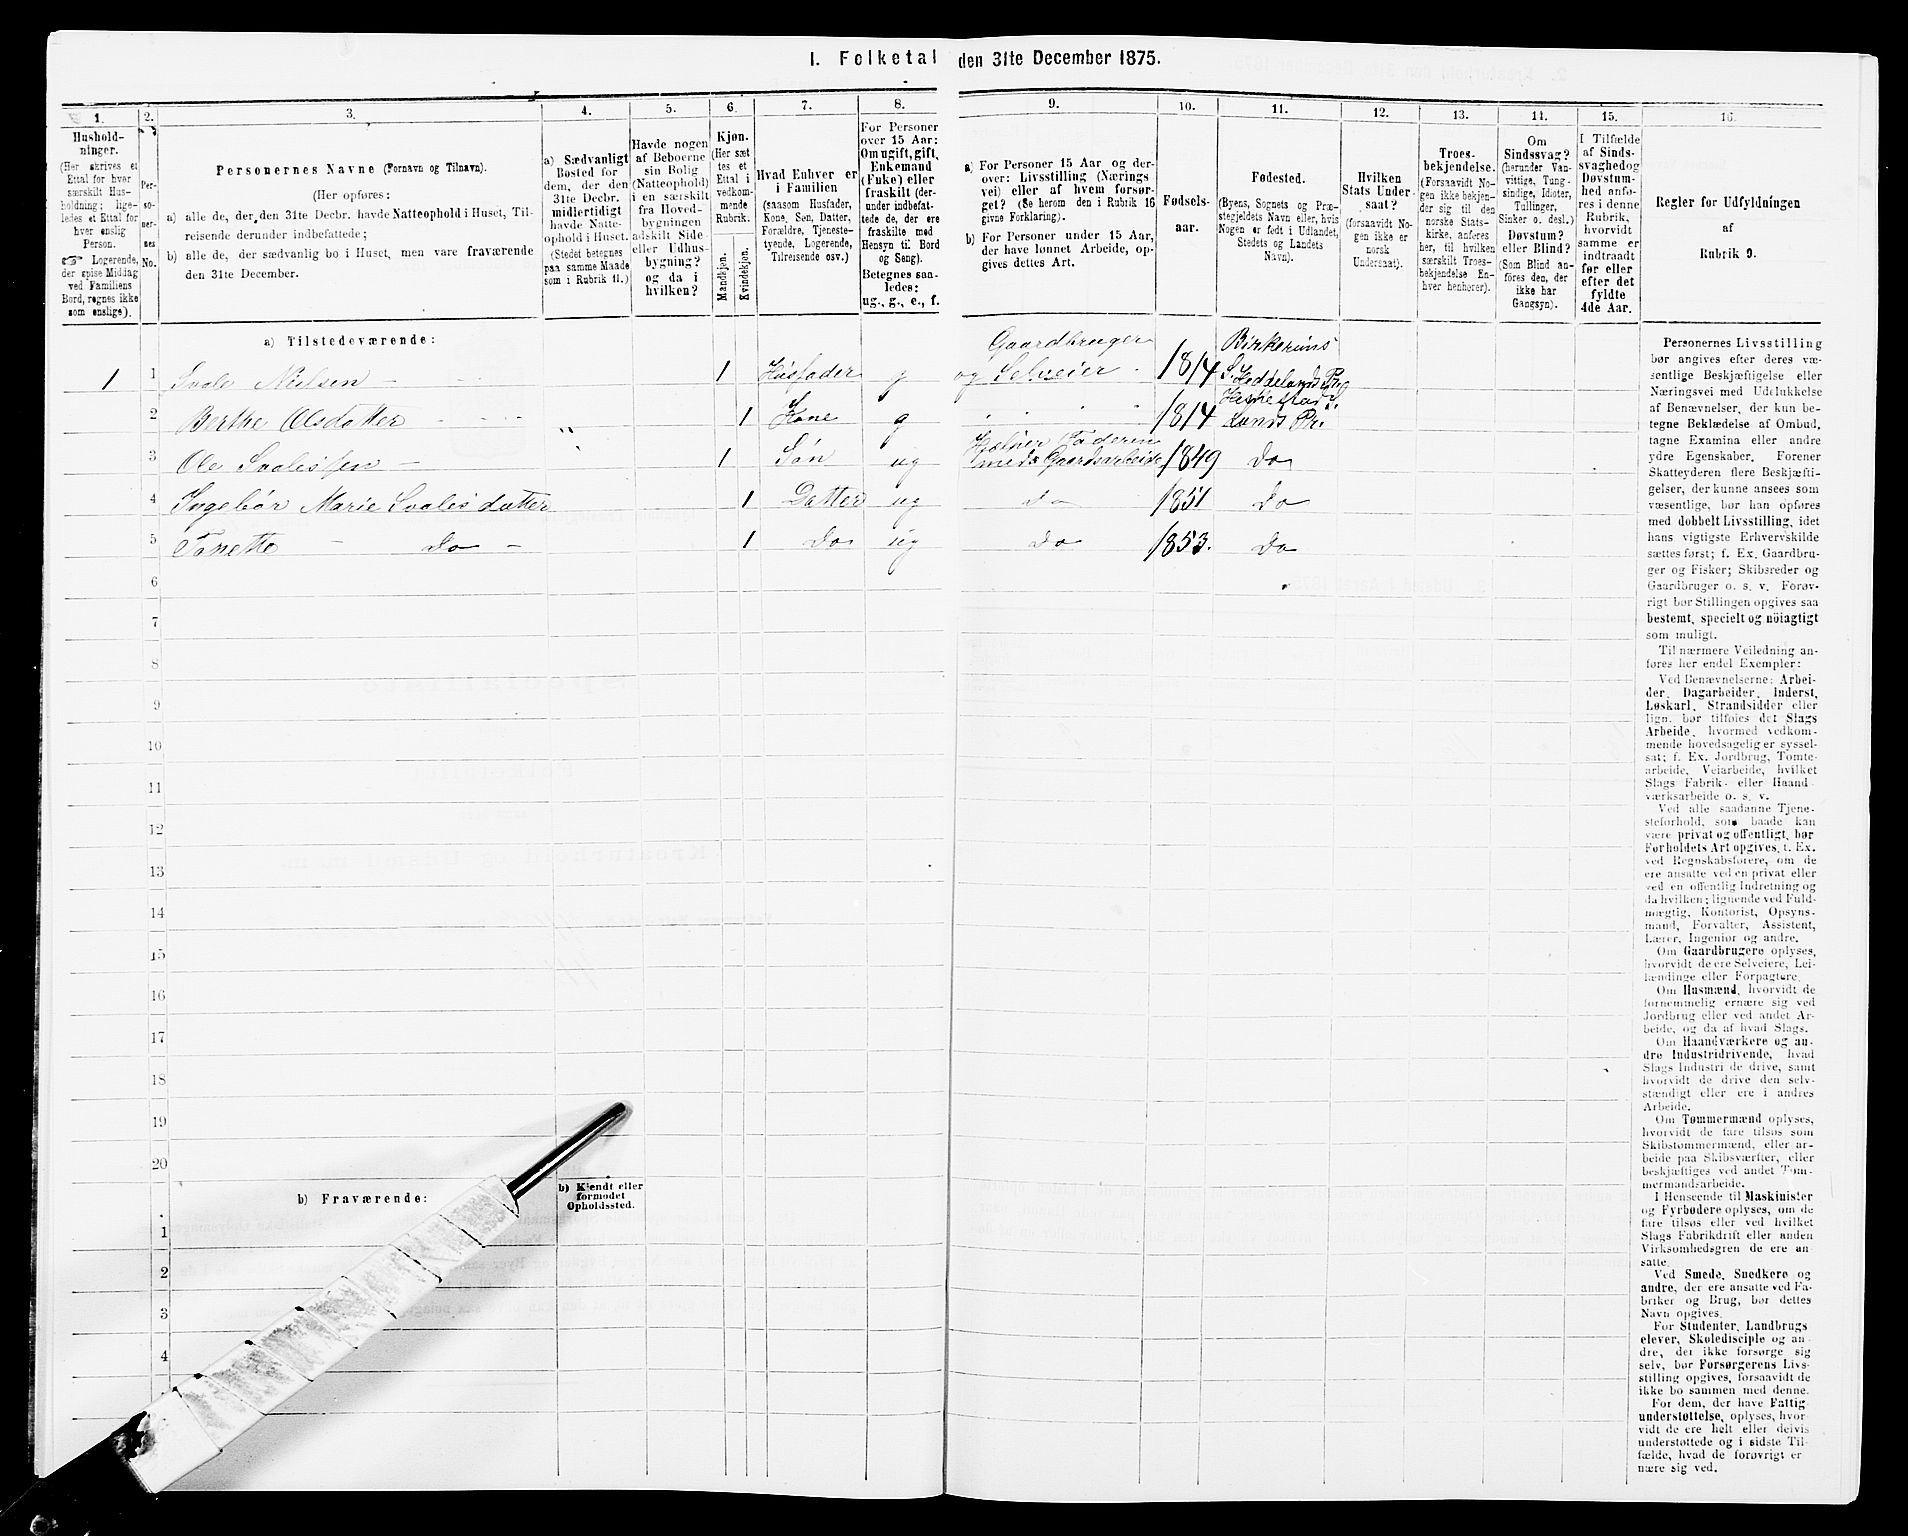 I. Folketal den 31te December 1875.
1.
Hushold-
ninger.
(Her skrives et
Ettal for hver
særskilt Hus-
holdning; lige-
ledes et Ettal for
hver enslig
Person.
☞ Logerende,
der spise Middag
ved Familiens
Bord, regnes ikke
som enslige).
2.
Per-
so-
ner-
nes
No.
3.
Personernes Navne (Fornavn og Tilnavn).
(Her opføres:
a) alle de, der den 31te Decbr. havde Natteophold i Huset, Til-
reisende derunder indbefattede;
b) alle de, der sædvanlig bo i Huset, men vare fraværende
den 31te December.
4.
a) Sædvanligt
Bosted for
dem, der den
31te Decbr.
midlertidigt
havde Natte-
ophold i Huset.
(Stedet betegnes
paa samme Maade
som i Rubrik 11.)
5.
Havde nogen
af Beboerne
sin Bolig
(Natteophold)
i en særskilt
fra Hoved-
bygningen
adskilt Side-
eller Udhus-
bygning?
og da i
hvilken?
6.
Kjøn.
(Her sæt
tes et
Ettal i
vedkom-
mende
Rubrik.
Mandkjøn.
Kvindekjøn.
7.
Hvad Enhver er
i Familien
(saasom Husfader,
Kone, Søn, Datter,
Forældre, Tjeneste-
tyende, Logerende,
Tilreisende osv.)
8.
For Personer
over 15 Aar:
Om ugift, gift,
Enkemand
(Fuke) eller
fraskilt (der-
under indbefat-
tede de, der ere
fraskilte med
Hensyn til Bord
og Seng).
Betegnes saa-
ledes:
ug., g., e., f.
9.
a) For Personer 15 Aar og der-
over: Livsstilling (Nærings
vei) eller af hvem forsør-
get? (Se herom den i Rubrik 16
givne Forklaring).
b) For Personer under 15 Aar,
der have lønnet Arbeide, op-
gives dettes Art.
10.
Fødsels-
aar.
11.
Fødested.
(Byens, Sognets og Præ-
stegjeldets Navn eller, hvis
Nogen er født i Udlandet,
Stedets og Landets
Navn).
12.
Hvilken
Stats Under-
saat?
(forsaavidt No-
gen ikke er
norsk
Undersaat).
13.
Troes-
bekjendelse.
(Forsaavidt No-
gen ikke bekjen-
der sig til den
norske Stats-
kirke, anføres
her, til hvilken
særskilt Troes-
bekjendelse En-
hver henhører).
14.
Om
Sindssvag?
(herunder Van-
vittige, Tung-
sindige, Idioter,
Tullinger,
Sinker o. desl.)
Døvstum?
eller Blind?
(Som Blind an-
føres den, der
ikke har
Gangsyn).
15.
I Tilfælde
af Sinds-
svaghed og
Døvstum-
hed anfø-
res i denne
Rubrik,
hvorvidt
samme er
indtraadt
før eller
efter det
fyldte
4de Aar.
16.
Regler for Udfyldningen
af
Rubrik 9.
a) Tilstedeværende:
1 1 Svale Nielsen - 1 Husfader g Gaardbruger og Selveier 1814 Birkerims S. Heddelands Prg
2 Berthe Olsdatter 1 Kone g 1814 Heskestad S. Lunds Pr:
3 Ole Svalessen - 1 Søn ug Hjelper Faderen med Gaardsarbeide 1849 do
4 Ingebor Marie Svalesdatter 1 Datter ug do 1851 do
5 Tonette - do - 1 do ug do 1853. do
6
7
8
9
10
11
12
13
14
15
16
17
18
19
20
b) Fraværende:
b) Kjendt eller
formodet
Opholdssted.
1
2
3
4
Personernes Livsstilling
bør angives efter deres væ-
sentlige Beskjæftigelse eller
Næringsvei med Udelukkelse
af Benævnelser, der kun be-
tegne Beklædelse af Ombud,
tagne Examina eller andre
ydre Egenskaber. Forener
Skatteyderen flere Beskjæfti-
gelser, der kunne ansees som
væsentlige, bør han opføres
med dobbelt Livsstilling, idet
hans vigtigste Erhvervskilde
sættes først; f. Ex. Gaardbru-
ger og Fisker; Skibsreder og
Gaardbruger o. s. v. Forøv-
rigt bør Stillingen opgives saa
bestemt, specielt og nöiagtigt
som muligt.
Til nærmere Veiledning an-
føres her endel Exempler:
Ved Benævnelserne: Arbei-
der, Dagarbeider, Inderst,
Løskarl, Strandsidder eller
lign. bør tilføies det Slags
Arbeide, hvormed vedkom-
mende hovedsagelig er syssel-
sat; f. Ex. Jordbrug, Tomte-
arbeide, Veiarbeide, hvilket
Slags Fabrik- eller Haand-
værksarbeide o. s. v.
Ved alle saadanne Tjene-
steforhold, som baade kan
være privat og offentligt, bør
Forholdets Art opgives, t. Ex.
ved Regnskabsførere, om de
ere ansatte ved en privat eller
ved en offentlig Indretning og
da hvilken; lignende ved Fuld-
mægtig, Kontorist, Opsyns-
mand, Forvalter, Assistent,
Lærer, Ingeniør og andre.
Om Gaardbrugere oplyses,
hvorvidt de ere Selveiere, Lei-
lændinge eller Forpagtere.
Om Husmænd, hvorvidt de
fornemmelig ernære sig ved
Jordbrug eller ved andet Ar-
beide, og da af hvad Slags.
Om Haandværkere og an-
dre Industridrivende, hvad
Slags Industri de drive, samt
hvorvidt de drive den selv-
stændigt eller ere i andres
Arbeide.
Om Tømmermænd oplyses,
hvorvidt de fare tilsøs som
Skibstømmermænd, eller ar-
beide paa Skibsværfter, eller
beskjæftiges ved andet Tøm-
mermandsarbeide.
I Henseende til Maskinister
og Fyrbødere oplyses, om de
fare tilsøs eller ved hvilket
Slags Fabrikdrift eller anden
Virksomhedsgren de ere an-
satte.
Ved Smede, Snedkere og
andre, der ere ansatte ved Fa-
briker og Brug, bør dettes
Navn opgives.
For Studenter, Landbrugs
elever, Skoledisciple og an-
dre, der ikke forsørge sig
selv, bør Forsørgerens Livs-
stilling opgives, forsaavidt de
ikke bo sammen med denne.
For dem, der have Fattig
understøttelse, oplyses, hvor-
vidt de ere helt eller delvis
understøttede og i sidste Til-
fælde, hvad de forøvrigt er
nære sig ved.